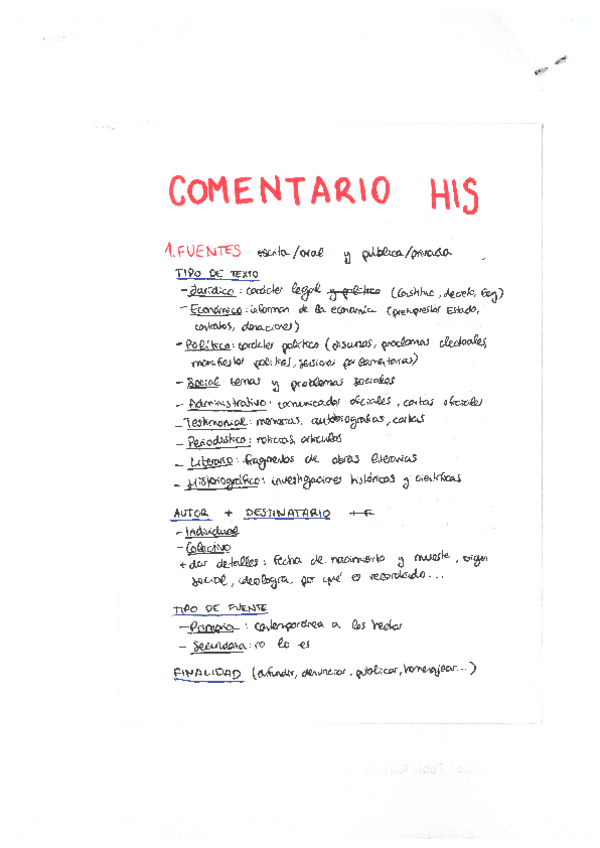 COMENTARIO HIS
1. FUENTES escrita/oral y pública/privada
TIPO DE TEXTO
- Jurídico: carácter legal y político (constituc, decreto, ley)
- Económico: informan de la economía (presupuestos Estado,
contratos, donaciones)
- Político: carácter político (discursos, proclamas electorales
manifiestos políticos, sesiones parlamentarias)
- Social temas y problemas sociales
- Administrativo: comunicados oficiales, cartas oficiales
- Testimonial: memorias, autobiografías, cartas
- Periodístico: noticias, artículos
- Literario: fragmentos de obras literarias
- Historiográfico: investigaciones históricas y científicas
AUTOR + DESTINATARIO
- Individual
- Colectivo
+ dar detalles: fecha de nacimiento y muerte, origen
social, ideología, por qué es recordado...
TIPO DE FUENTE
- Primaria: contemporánea a los hechos
- Secundaria: no lo es
FINALIDAD (difundir, denunciar, publicar, homenajear...)